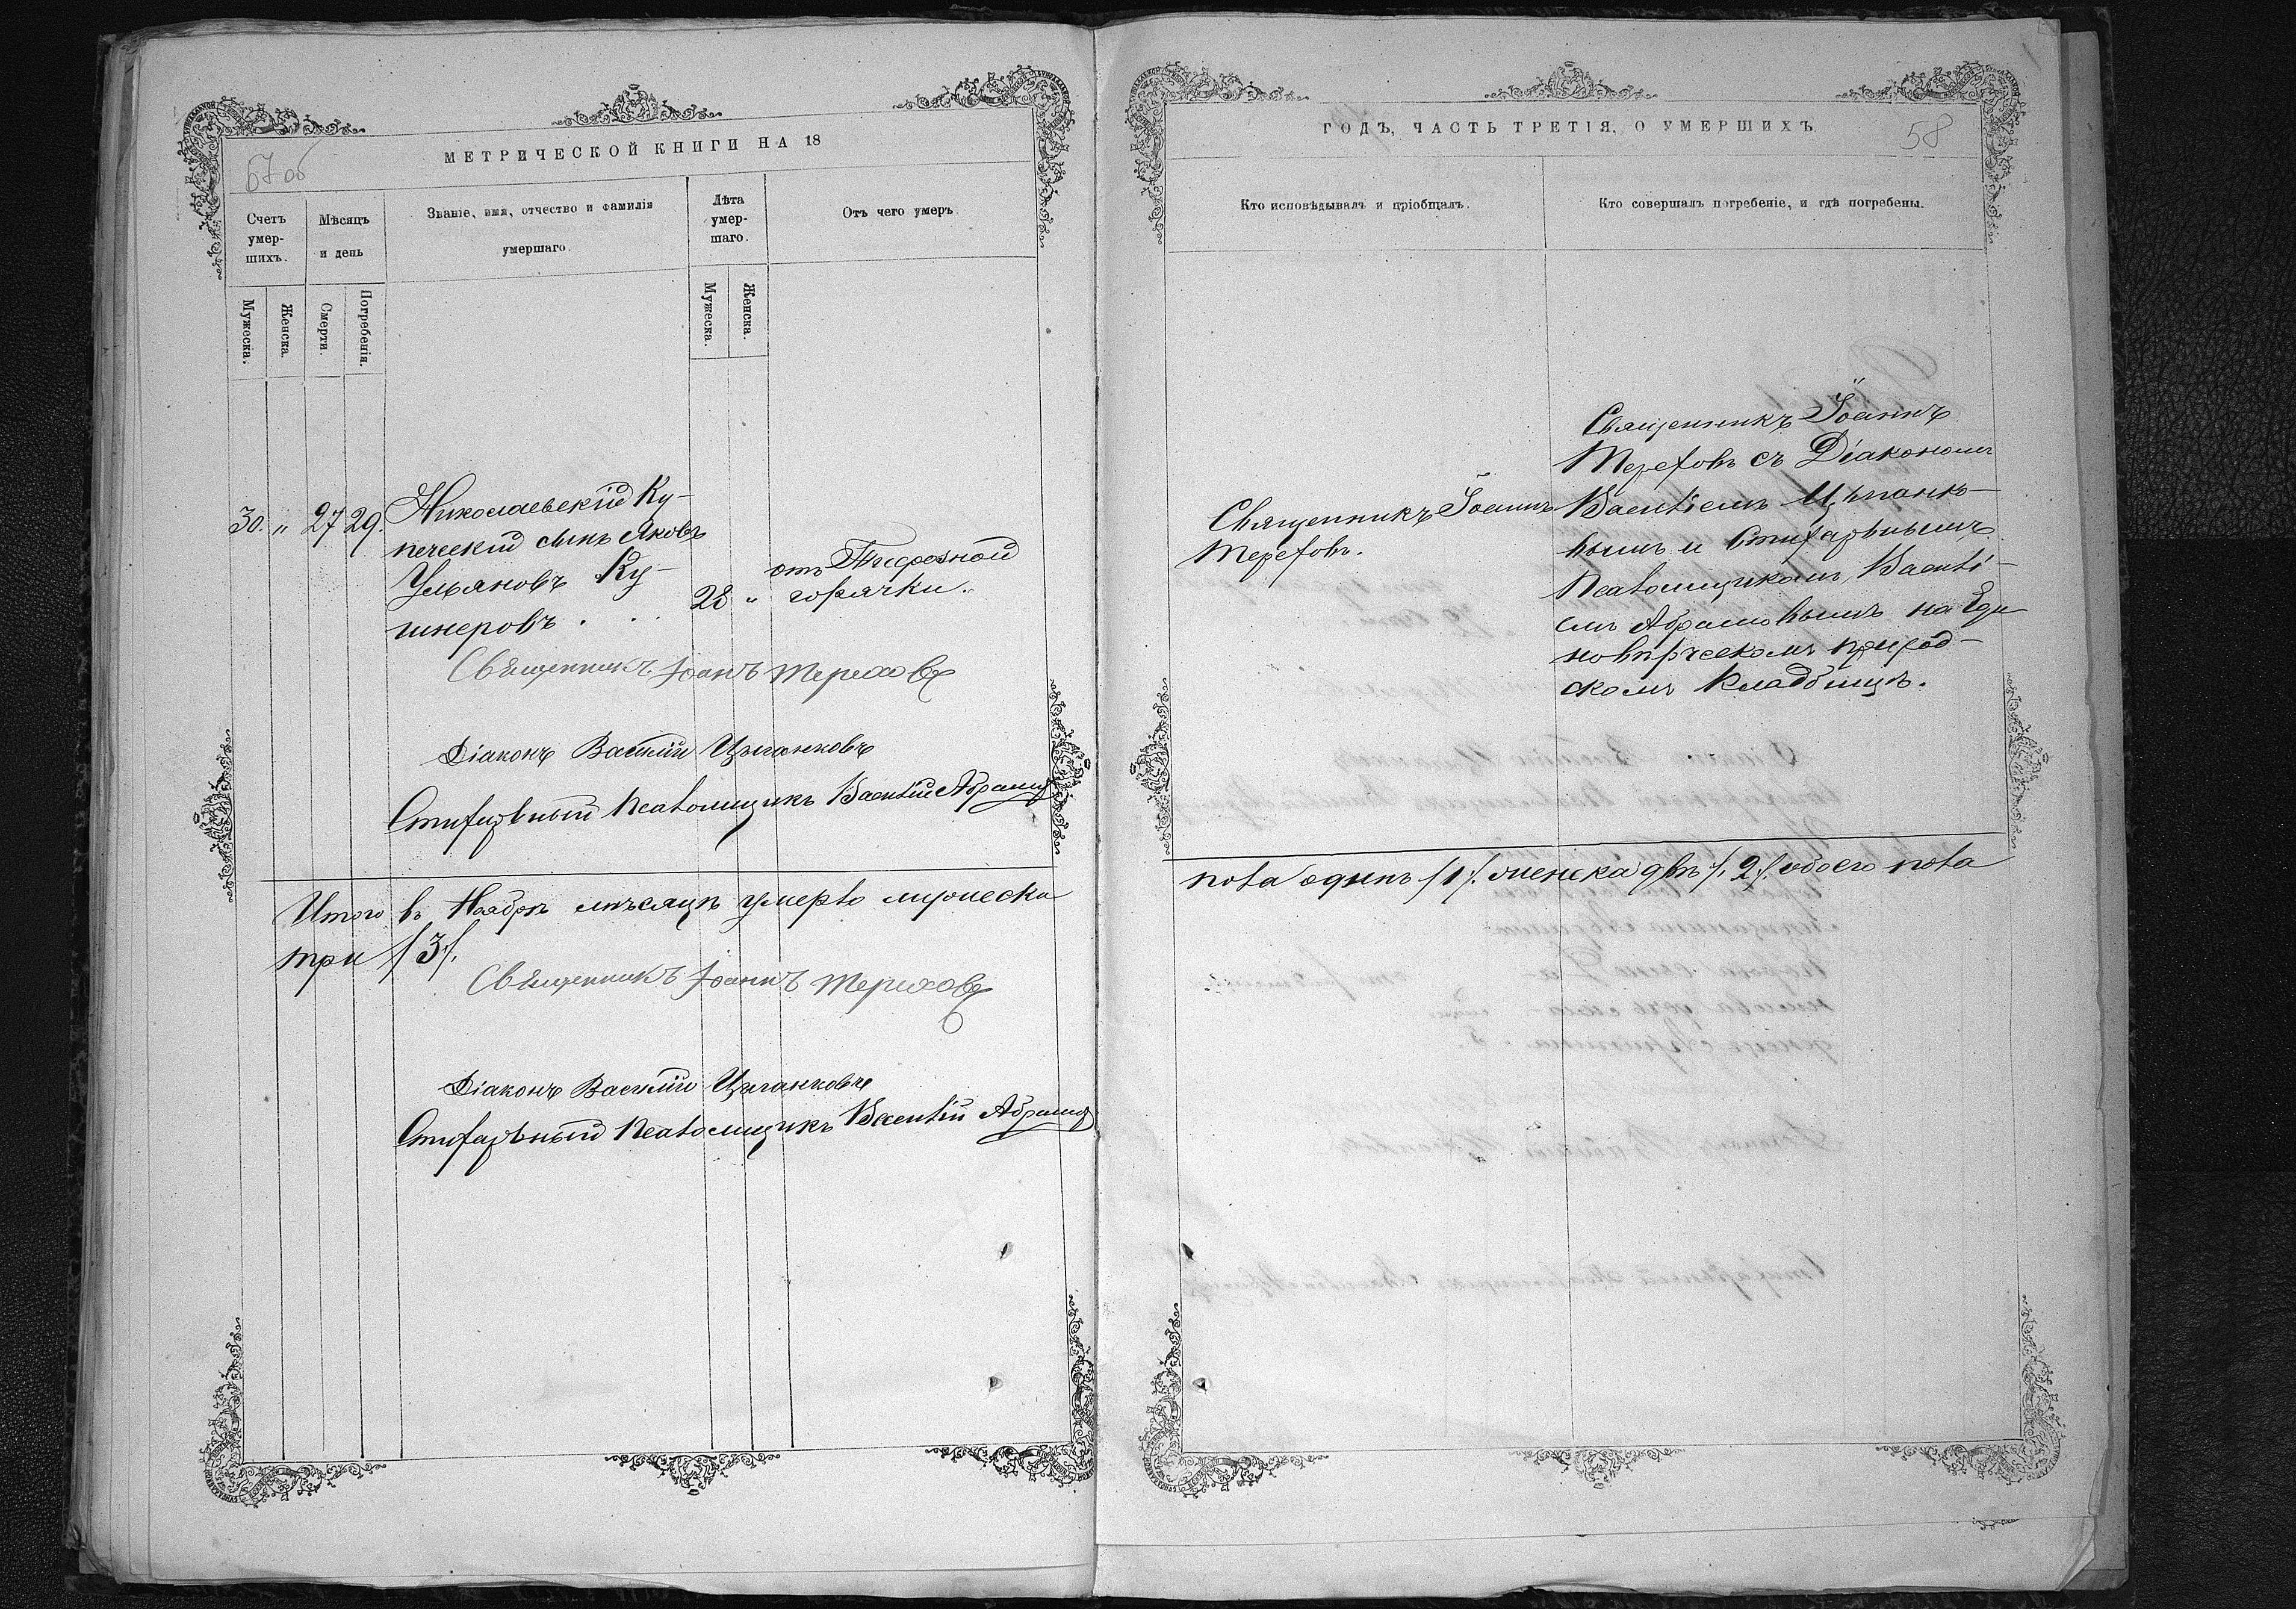 МЕТРИЧЕСКОЙ КНИГИ НА 18
57 об
Счетъ умер-шихъ.
Мѣсяцъ и день
Званіе, имя, отчество и фамилія умершаго.
Лѣта умер-шаго.
Отъ чего умеръ.
Мужеска.
Женска.
Смерти.
Погребенія.
Мужеска.
Женска.
30. " 27 29. Николаевскій Ку-
печескій сынъ Яковъ
Ульяновъ Ку-
шнеровъ . . .
28 "
отъ Тифозной
горячки.
Священникъ Іоаннъ Тереховъ
Діаконъ Василій Цыганковъ
Стихарный Псаломщикъ Василій Абрамовъ
Итого въ Ноябрѣ мѣсяцѣ умерло мужеска
три /3/.
Священникъ Іоаннъ Тереховъ
Діаконъ Василій Цыганковъ
Стихарный Псаломщикъ Василій Абрамовъ
ГОДЪ, ЧАСТЬ ТРЕТІЯ, О УМЕРШИХЪ.
58
Кто исповѣдывалъ и пріобщалъ.
Кто совершалъ погребеніе, и гдѣ погребены.
Священникъ Іоаннъ
Тереховъ.
Священникъ Іоаннъ
Тереховъ съ Діакономъ
Василіемъ Цыганко-
вымъ и Стихарнымъ
Псаломщикомъ Васили-
емъ Абрамовымъ на Еди
новѣрческомъ приход-
скомъ кладбищѣ.
пола одинъ /1/. женска двѣ /2/. обоего пола